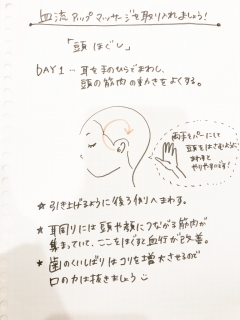 血流アップマッサージを取り入れましょう!
「頭ほぐし」
DAY1…耳を手のひらでまわし、
頭の筋肉の動きをよくする。
両手をパーにして
頭をはさむように
まわすと
やりやすいです!
★ 引き上げるように後ろ側へまわす。
★ 耳周りには頭や顔につながる筋肉が
集まっていて、ここをほぐすと血行が改善。
★ 歯のくいしばりはコリを増大させるので
口の力は抜きましょう